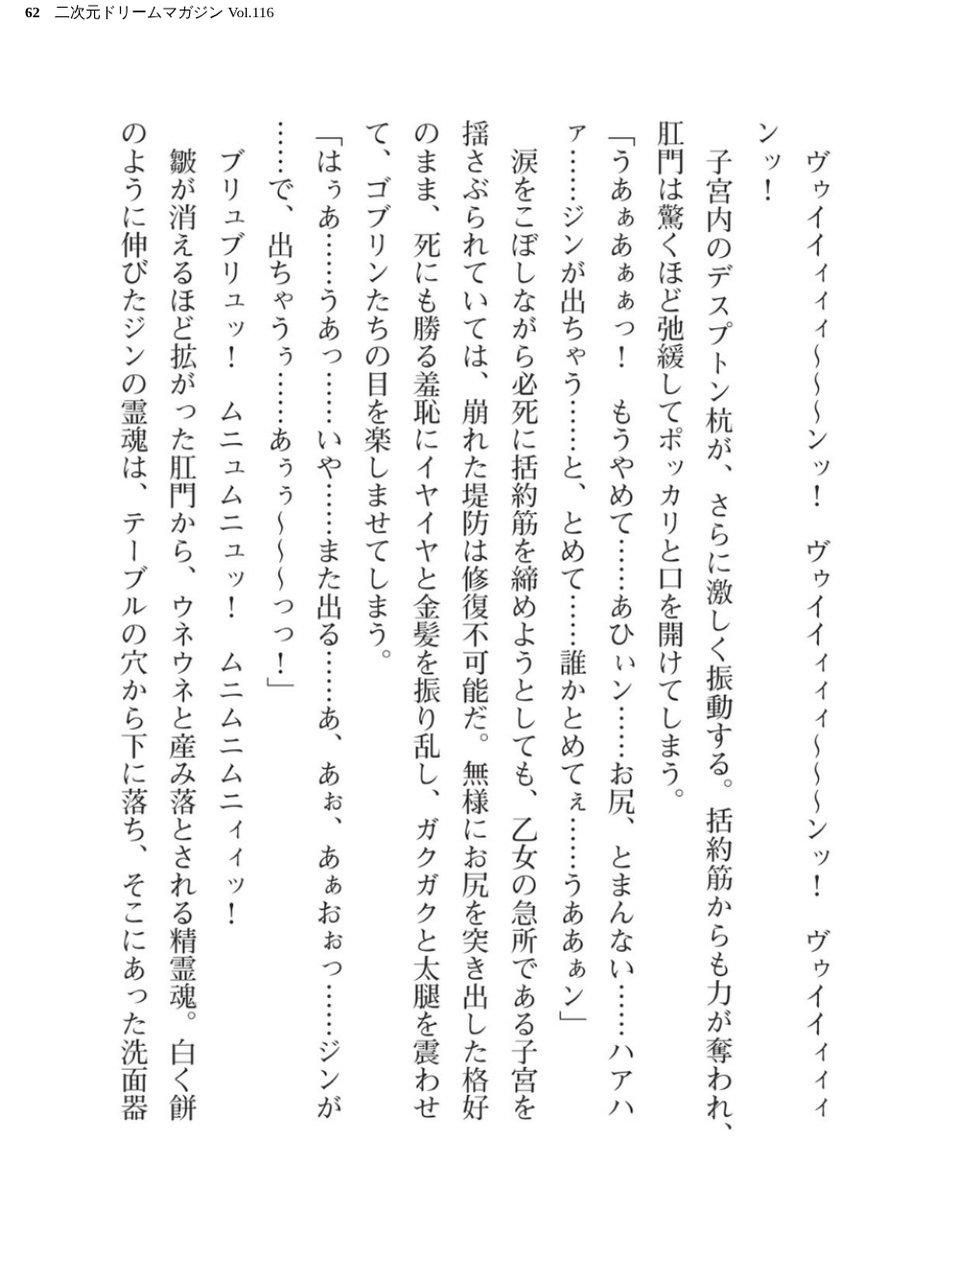 62 二次元ドリームマガジン Vol.116
ヴゥイイィィィ～～～ンッ！　ヴゥイイィィィ～～～ンッ！　ヴゥイイィィィ
ンッ！
子宮内のデスプトン杭が、さらに激しく振動する。括約筋からも力が奪われ、
肛門は驚くほど弛緩してポッカリと口を開けてしまう。
「うあぁあぁぁっ！　もうやめて……あひぃン……お尻、とまんない……ハアハ
ァ……ジンが出ちゃう……と、とめて……誰かとめてぇ……うああぁン」
涙をこぼしながら必死に括約筋を締めようとしても、乙女の急所である子宮を
揺さぶられていては、崩れた堤防は修復不可能だ。無様にお尻を突き出した格好
のまま、死にも勝る羞恥にイヤイヤと金髪を振り乱し、ガクガクと太腿を震わせ
て、ゴブリンたちの目を楽しませてしまう。
「はぅあ……うあっ……いや……また出る……あ、あぉ、あぁおぉっ……ジンが
……で、出ちゃうぅ……あぅぅ～～～っっ！」
ブリュブリュッ！　ムニュムニュッ！　ムニムニムニィィッ！
皺が消えるほど拡がった肛門から、ウネウネと産み落とされる精霊魂。白く餅
のように伸びたジンの霊魂は、テーブルの穴から下に落ち、そこにあった洗面器